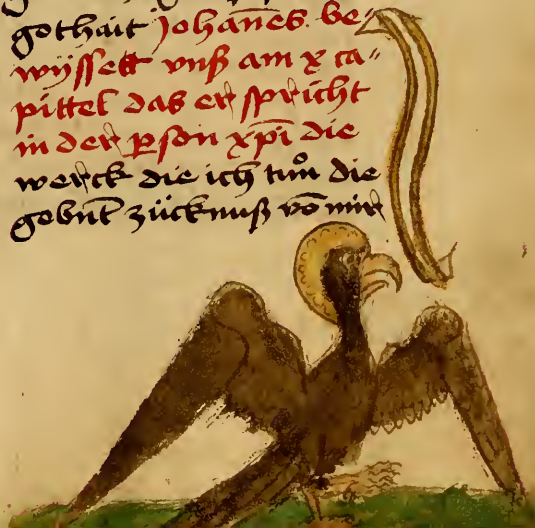 gothait Johan̄es. be⸗
wÿssett vnß am x ca⸗
pittel das er spricht
in der p̱son xp̄i die
werck die ich tuͦn die
gebnt̄ zücknuß vō mir